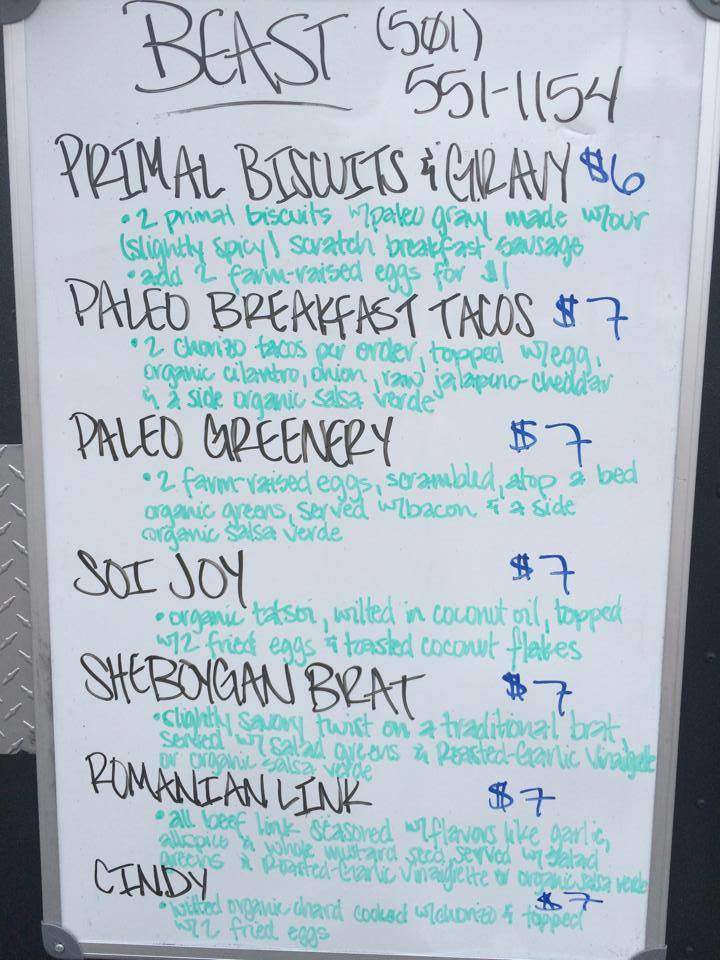 BEAST (501)
551-1154
PRIMAL BISCUITS & GRAVY $6
• 2 primal biscuits w/paleo gravy made w/our
(slightly spicy) scratch breakfast sausage
• add 2 farm-raised eggs for $1
PALEO BREAKFAST TACOS $7
• 2 chorizo tacos per order, topped w/egg,
organic cilantro, onion, raw jalapeno-cheddar
& a side organic salsa verde
PALEO GREENERY $7
• 2 farm-raised eggs, scrambled, atop a bed
organic greens, served w/bacon & a side
organic salsa verde
SOI JOY $7
• organic tatsoi, wilted in coconut oil, topped
w/2 fried eggs & toasted coconut flakes
SHEBOYGAN BRAT $7
• slightly savory twist on a traditional brat
served w/ salad greens & Roasted-Garlic Vinaigrette
or organic salsa verde
ROMANIAN LINK $7
• all beef link seasoned w/flavors like garlic,
allspice & whole mustard seed, served w/ salad
greens & Roasted-Garlic Vinaigrette or organic salsa verde
CINDY $7
• wilted organic chard cooked w/chorizo & topped
w/2 fried eggs